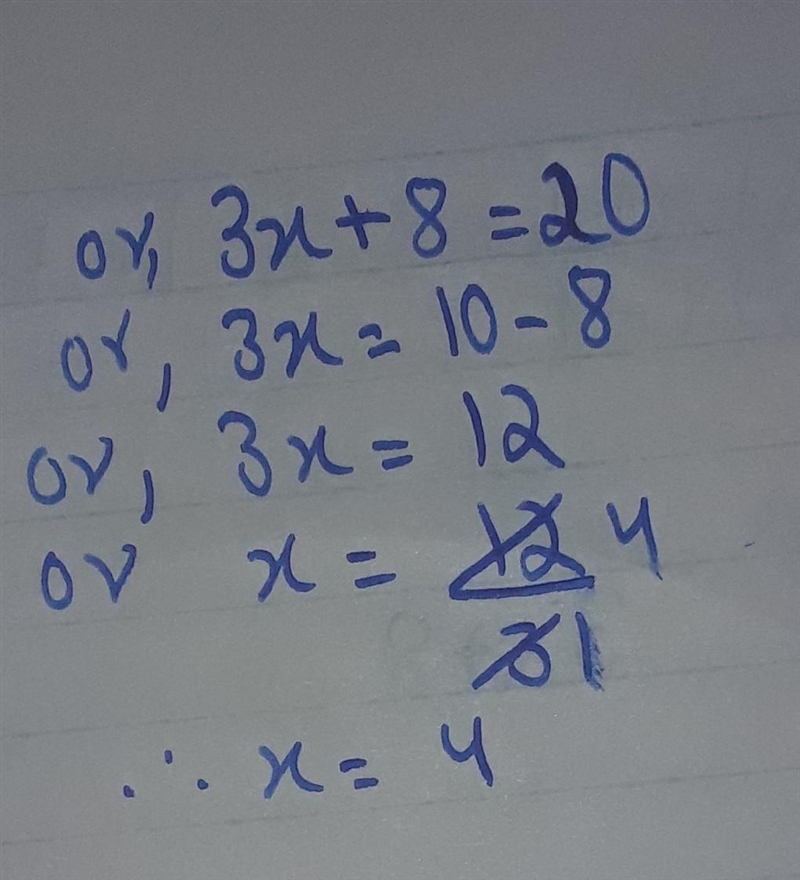 or, 3x + 8 = 20
or, 3x = 10 - 8
or, 3x = 12
or x = 12/3 4/1
∴ x = 4